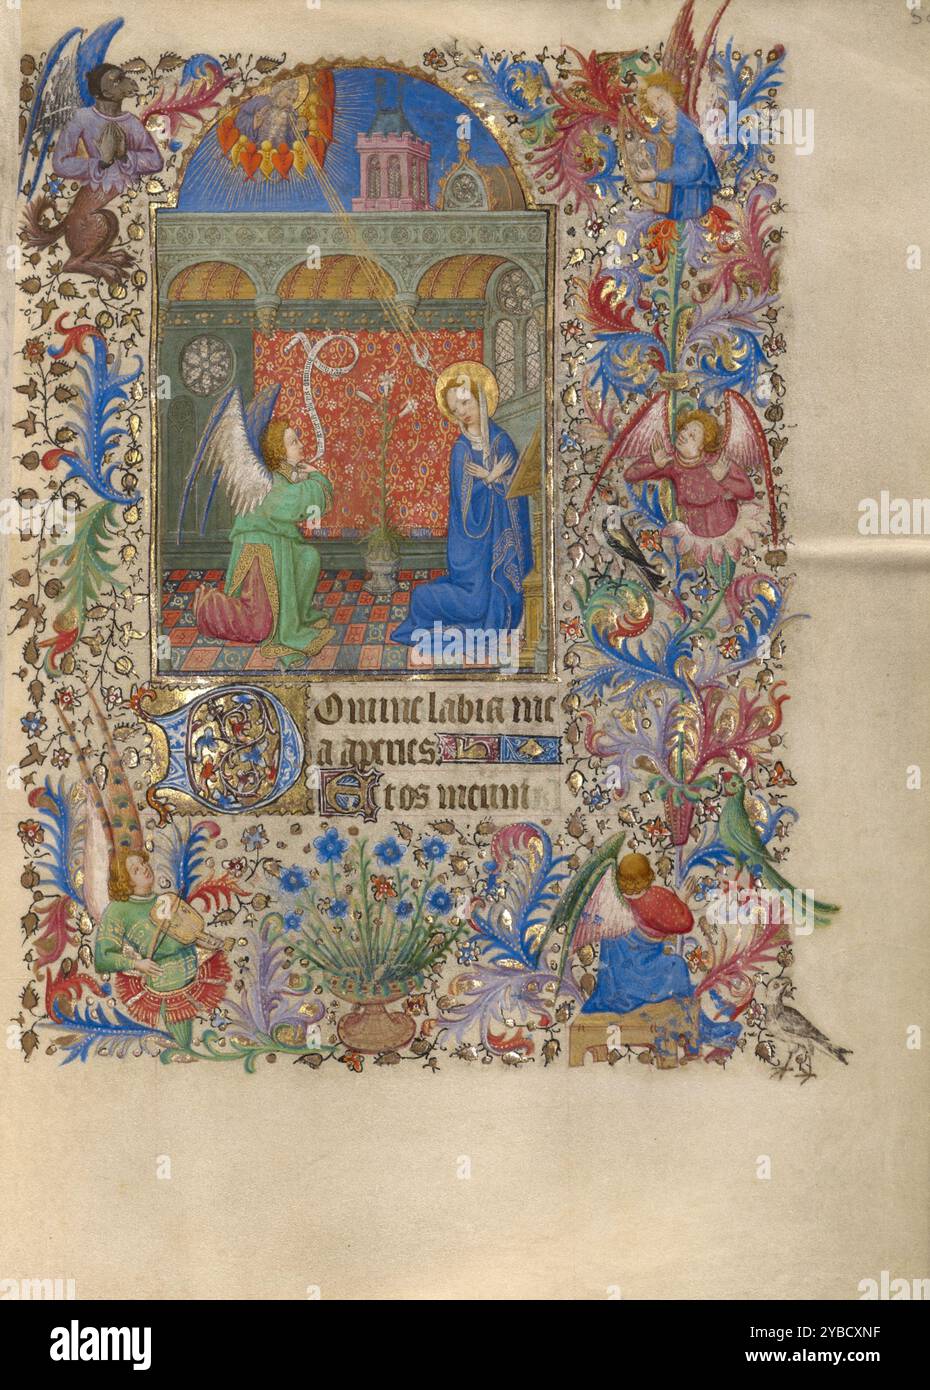 Domine labia me
a aperies
Et os meum
alamy
Image ID: 2YBCXNF
www.alamy.com